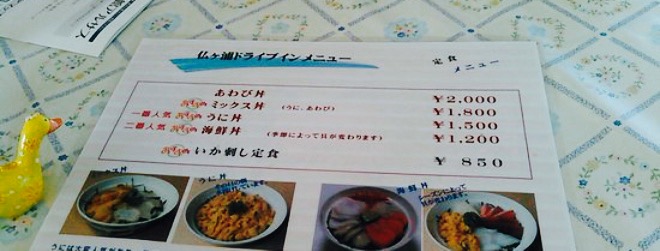 仏ヶ浦ドライブインメニュー
定食
メニュー
あわび丼 ¥2,000
ミックス丼 (うに、あわび) ¥1,800
一番人気 うに丼 ¥1,500
二番人気 海鮮丼 (季節によって具が変わります) ¥1,200
いか刺し定食 ¥ 850
うに丼
海鮮丼